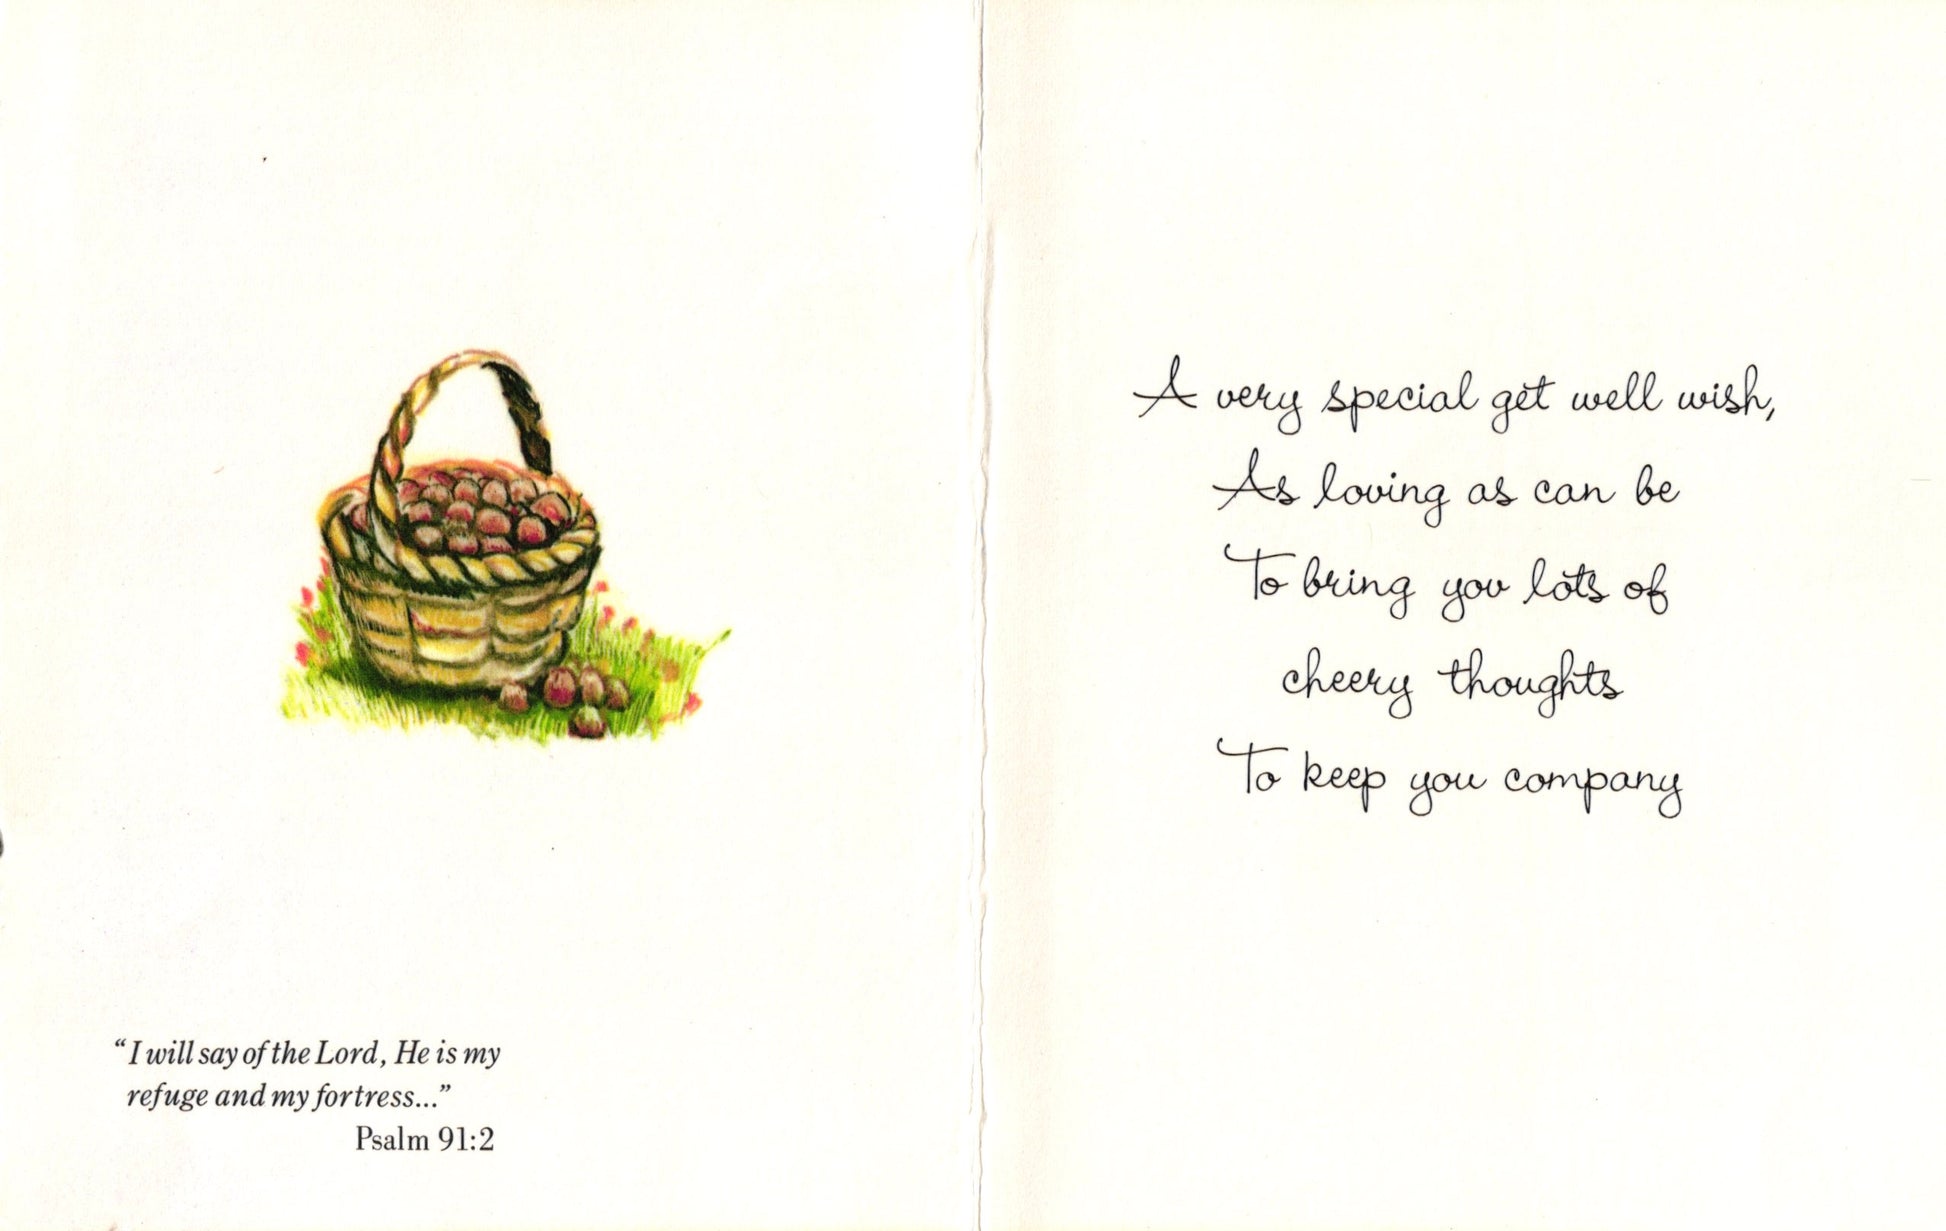 “I will say of the Lord, He is my
refuge and my fortress...”
Psalm 91:2
A very special get well wish,
As loving as can be
To bring you lots of
cheery thoughts
To keep you company